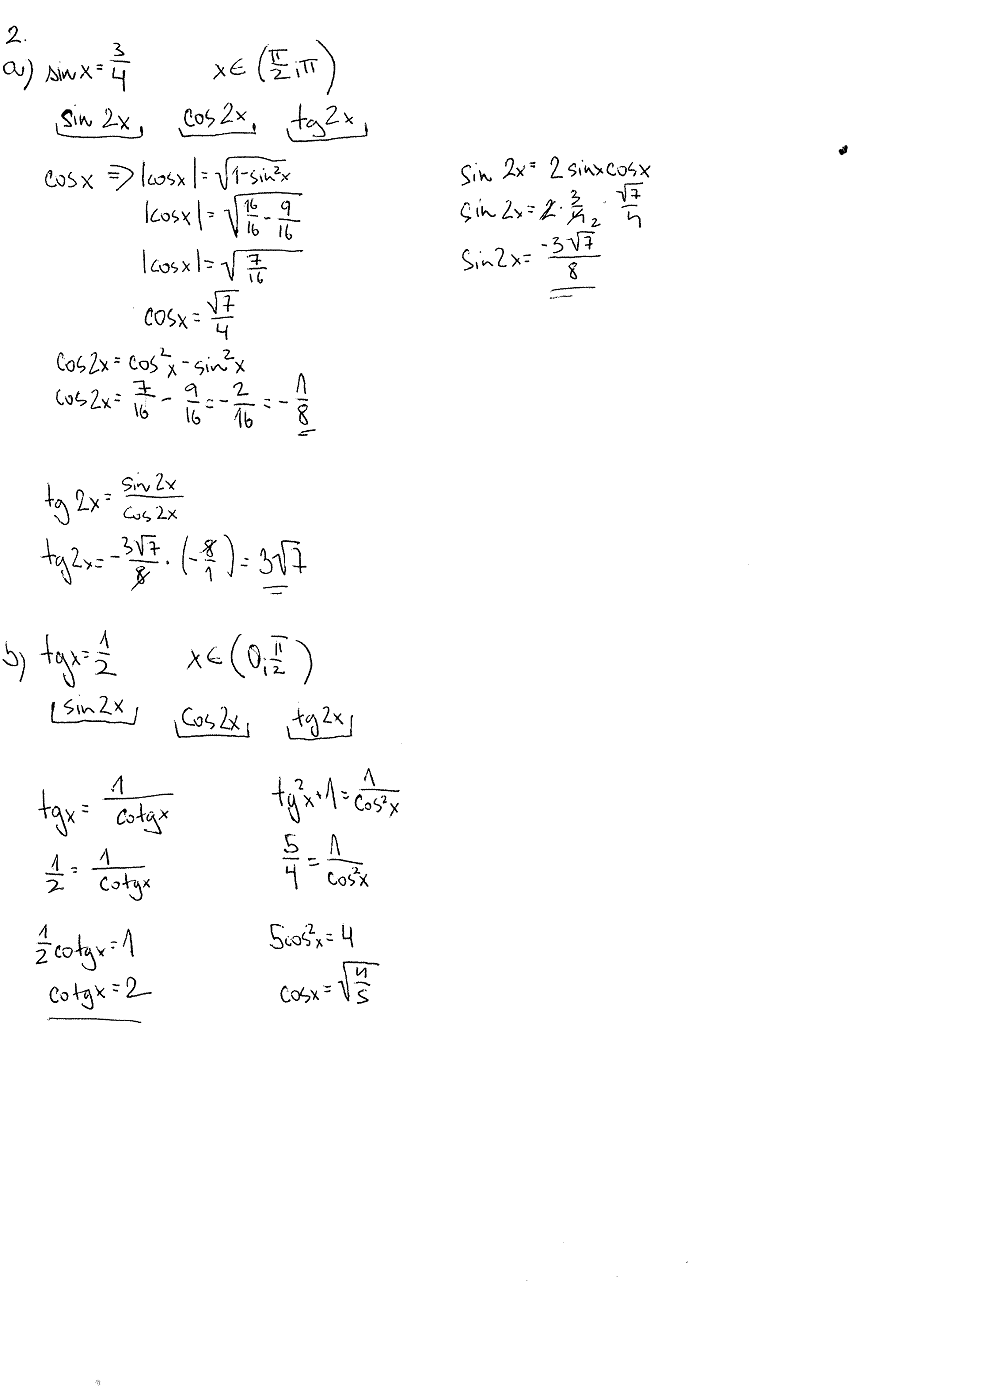 2.
a) sinx = 3/4 x ∈ (π/2; π)
sin 2x, cos 2x, tg 2x
cosx ⇒ |cosx| = √(1-sin²x)
|cosx| = √(16/16 - 9/16)
|cosx| = √(7/16)
cosx = √7/4
cos2x = cos²x - sin²x
cos2x = 7/16 - 9/16 = -2/16 = -1/8
sin 2x = 2 sinx cosx
sin 2x = 2 · 3/4 2 · √7/4
sin2x = -3√7/8
tg 2x = sin2x/cos2x
tg2x = -3√7/8 · (-8/1) = 3√7
b) tgx = 1/2 x ∈ (0; π/2)
sin2x, cos2x, tg2x
tgx = 1/cotgx
1/2 = 1/cotgx
1/2 cotgx = 1
cotgx = 2
tg²x + 1 = 1/cos²x
5/4 = 1/cos²x
5cos²x = 4
cosx = √(4/5)